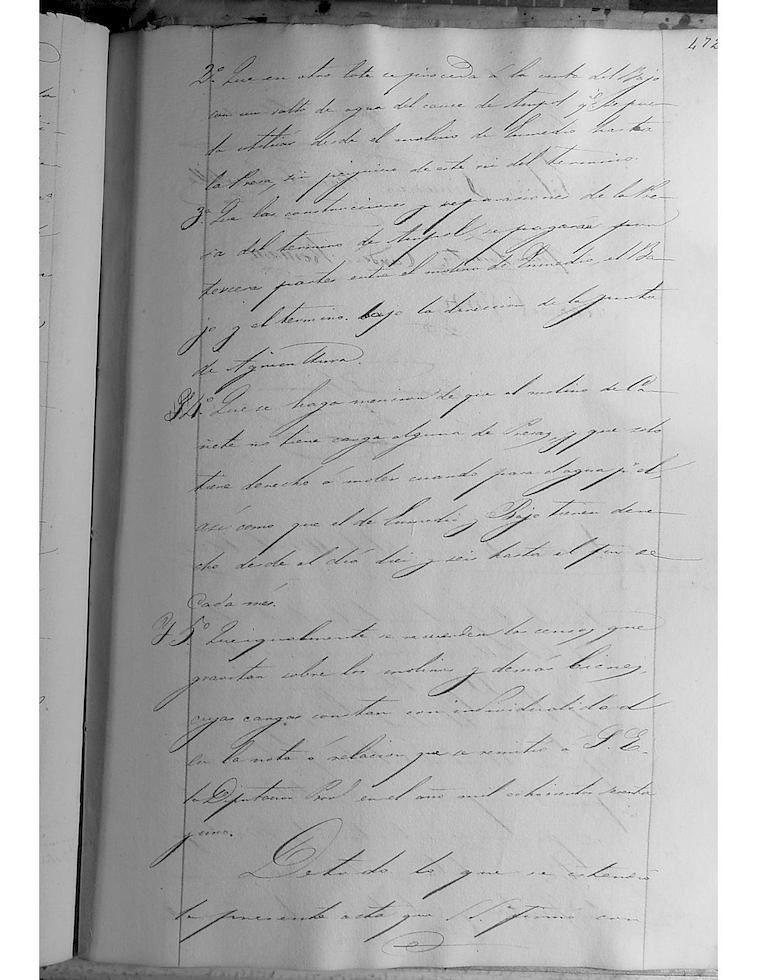 472
2º Que en otro lote se proceda á la venta del Bajo
con un salto de agua del cauce de Ampol qe se pue-
da utilizar desde el molino de Enmedio hasta
la Presa, sin perjuicio de este ni del termino.
3º Que las construcciones y reparaciones de la Pre-
sa del termino de Ampol, se pagarán por
terceras partes entre el molino de Enmedio, el Ba-
jo y el termino, bajo la direccion de la Junta
de Agricultura.
4º Que se haga mencion de que el molino de Ca-
ñete no tiene carga alguna de Presas, y que solo
tiene derecho á moler cuando pasa el agua pr el,
asi como que el de Enmedio y Bajo tienen dere-
cho desde el dia diez y seis hasta el fin de
cada mes.
Y 5º Que igualmente se recuerden los censos que
gravitan sobre los molinos y demás bienes,
cuyas cargas constan con individualidad
en la nota ó relacion que se remitió á S. E.
la Diputacion Prov.l en el año mil ochocientos sesenta
y uno.
De todo lo que se estenderá
la presente acta que S.S. firmó con